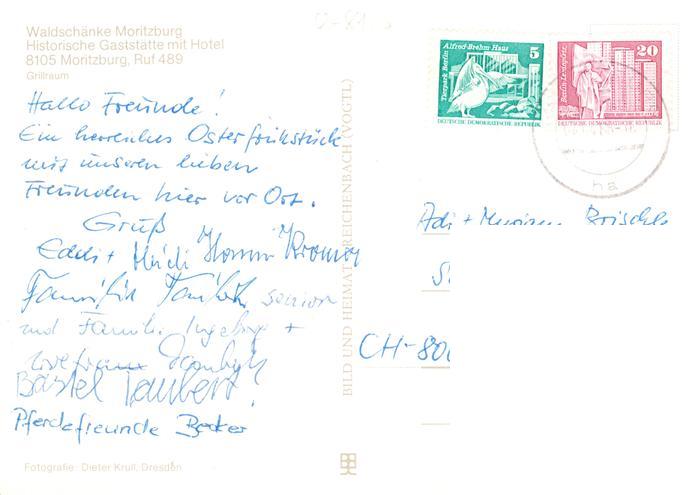 Waldschänke Moritzburg
Historische Gaststätte mit Hotel
8105 Moritzburg, Ruf 489
Grillraum
Hallo Freunde!
Ein herrliches Osterfrühstück
mit unseren lieben
Freunden hier vor Ort.
Gruß
Eddi +
Familie senior
und Familie Ingeborg +
Bästel Taubert!
Pferdefreunde Becker
Fotografie: Dieter Krull, Dresden
BILD UND HEIMAT REICHENBACH (VOGTL)
Tierpark Berlin Alfred-Brehm Haus 5
DEUTSCHE DEMOKRATISCHE REPUBLIK
Berlin-Leninplatz 20
DEUTSCHE DEMOKRATISCHE REPUBLIK
Adi +
CH-80